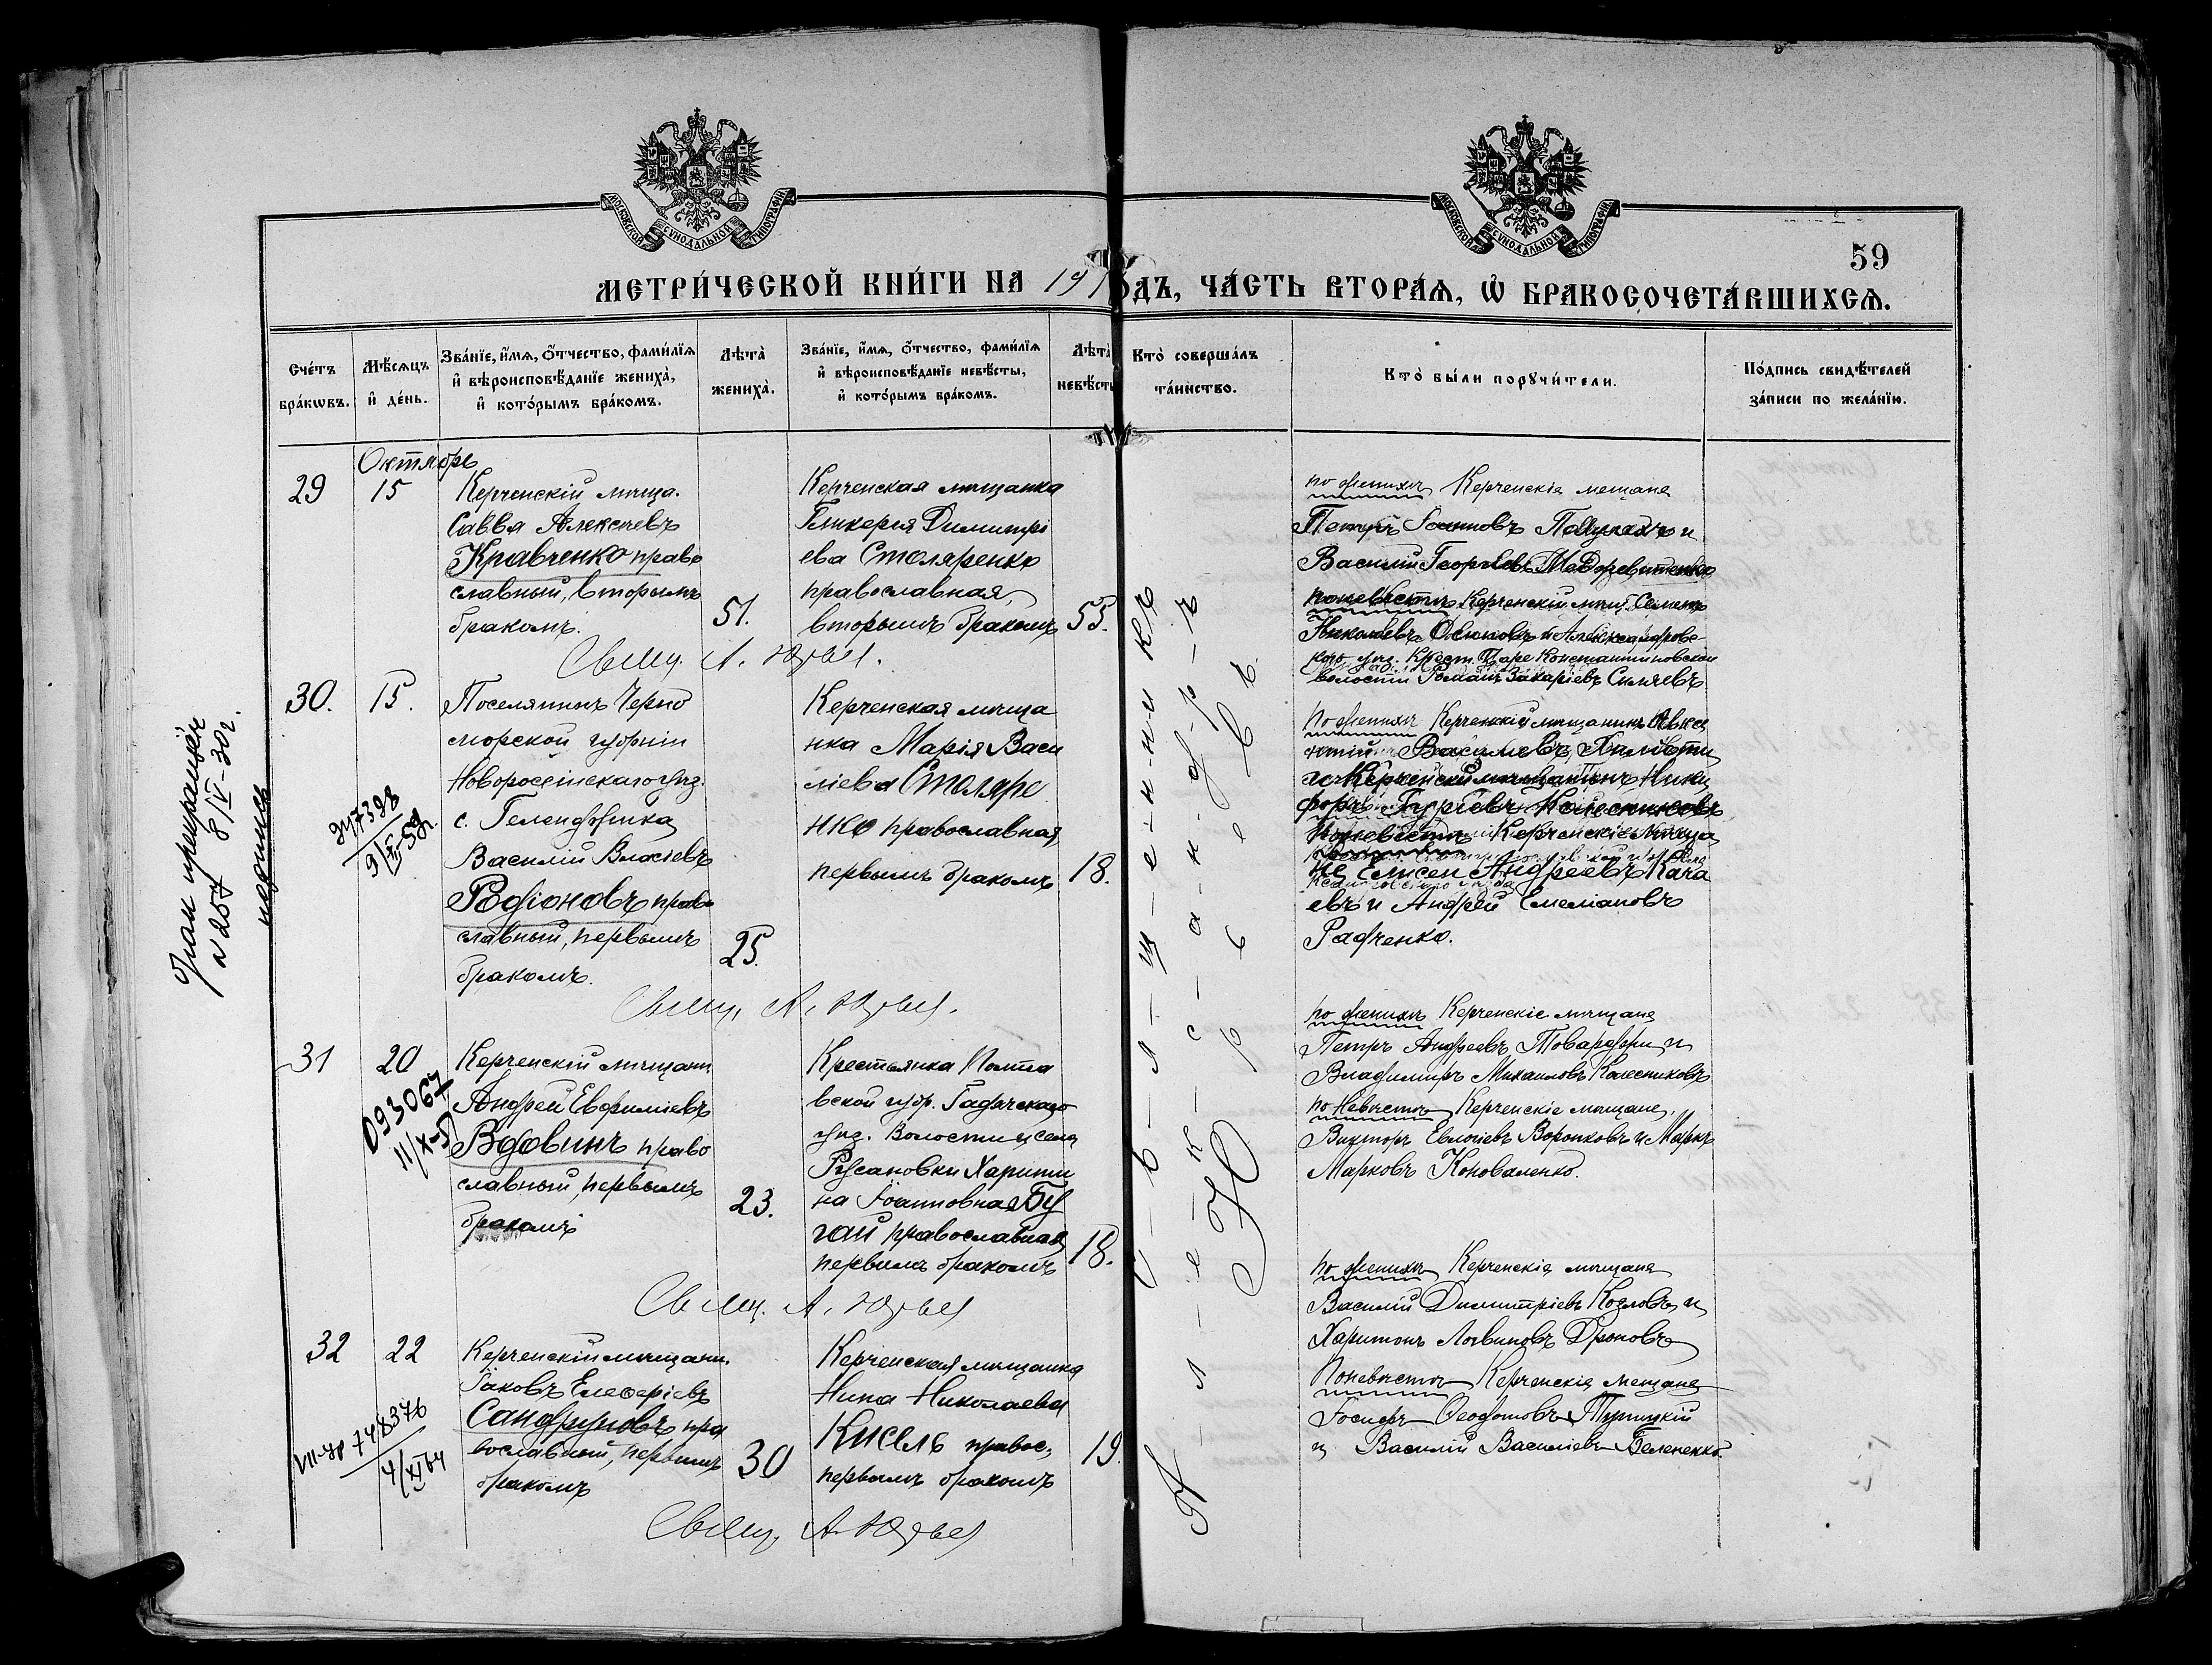 МОСКОВСКОЙ СѴНОДАЛЬНОЙ ТИПОГРАФІИ
МОСКОВСКОЙ СѴНОДАЛЬНОЙ ТИПОГРАФІИ
59
МЕТРИ́ЧЕСКОЙ КНИ́ГИ НА 191 ОДЪ, ЧА́СТЬ ВТОРА́Ѧ, Ѡ҆ БРАКОСОЧЕТА́ВШИХСѦ.
Сче́тъ бра́кѡвъ.
Мѣ́сѧцъ и҆ де́нь.
Зва́нїе, и҆́мѧ, ѻ҆́тчество, фами́лїѧ и҆ вѣроисповѣ́данїе жениха̀, и҆ кото́рымъ бра́комъ.
Лѣта̀ жениха̀.
Зва́нїе, и҆́мѧ, ѻ҆́тчество, фами́лїѧ и҆ вѣроисповѣ́данїе невѣ́сты, и҆ кото́рымъ бра́комъ.
Лѣта̀ невѣсты
Кто̀ соверша́лъ та́инство.
Кто̀ бы́ли порꙋчи́тели.
По́дпись свидѣ́телей за́писи по жела́нїю.
Октябрь
29
15
Керченскій мѣща.
Савва Алексѣевъ
Кравченко право
славный, вторымъ
бракомъ.
51.
Керченская мѣщанка
Гликерія Димитрі
ева Столяренко
православная,
вторымъ бракомъ
55.
по женихѣ Керченскіе мещане
Петръ Іоанновъ и
Василій Георгіевъ
по невѣстѣ Керченскій мѣщ. Семенъ
Николаевъ Осиповъ и Александровс
каго уѣз. Крест. Царе Константиновской
волости Романъ Захаріевъ
Свящ. А. Юрьев.
30.
15.
Поселянинъ Черно
морской губрніи
Новоросійскаго уѣз.
с. Геленджика
Василій Власіевъ
Родіоновъ право
славный, первымъ
бракомъ.
25.
Керченская мѣща
нка Марія Васи
ліева Столяре
нко православная
первымъ бракомъ
18.
По женихѣ Керченскій мѣщанинъ
Василіевъ
Керченскій мѣщанинъ Ники
форъ
По невѣстѣ Керченскіе мѣща
не Елисей Андреевъ Кача
евъ и Андрей Емеліановъ
Радченко.
Свящ. А. Юрьев.
31
20
Керченскій мѣщани
Андрей Евфиміевъ
Вдовинъ право
славный, первымъ
бракомъ
23.
Крестьянка Полта
вской губр. Гадячскаго
уѣз. Волости и села
Русановки Харити
на Іоанновна Бу
гай православная
первымъ бракомъ
18.
по женихѣ Керченскіе мѣщане
Петръ Андреевъ и
Владимиръ Михаиловъ Колесниковъ
по невѣстѣ Керченскіе мѣщане,
Викторъ Евлогіевъ Воронковъ и Маркъ
Марковъ Коноваленко.
Свящ. А. Юрьев
32
22
Керченскій мѣщани.
Іаковъ Елеѳеріевъ
Сандруновъ пра
вославный, первымъ
бракомъ
30
Керченская мѣщанка
Нина Николаева
Кисель правос,
первымъ бракомъ
19.
по женихѣ Керченскіе мѣщане
Василій Димитріевъ Козловъ и
Харитонъ Логвиновъ Дроновъ
По невѣстѣ Керченскіе мещане
Іосифъ Ѳеодотовъ
и Василій Василіевъ Белененко
Свящ. А. Юрьев
С-в-я-щ-е-н-н-и-къ
А-л-е-к-с-а-н-д-р-ъ
Ю р ь е в ъ
№ 257 8/IV-30г.
247328
9/XII-59
093067
11/X-51
VII-яр 748376
4/XI 64